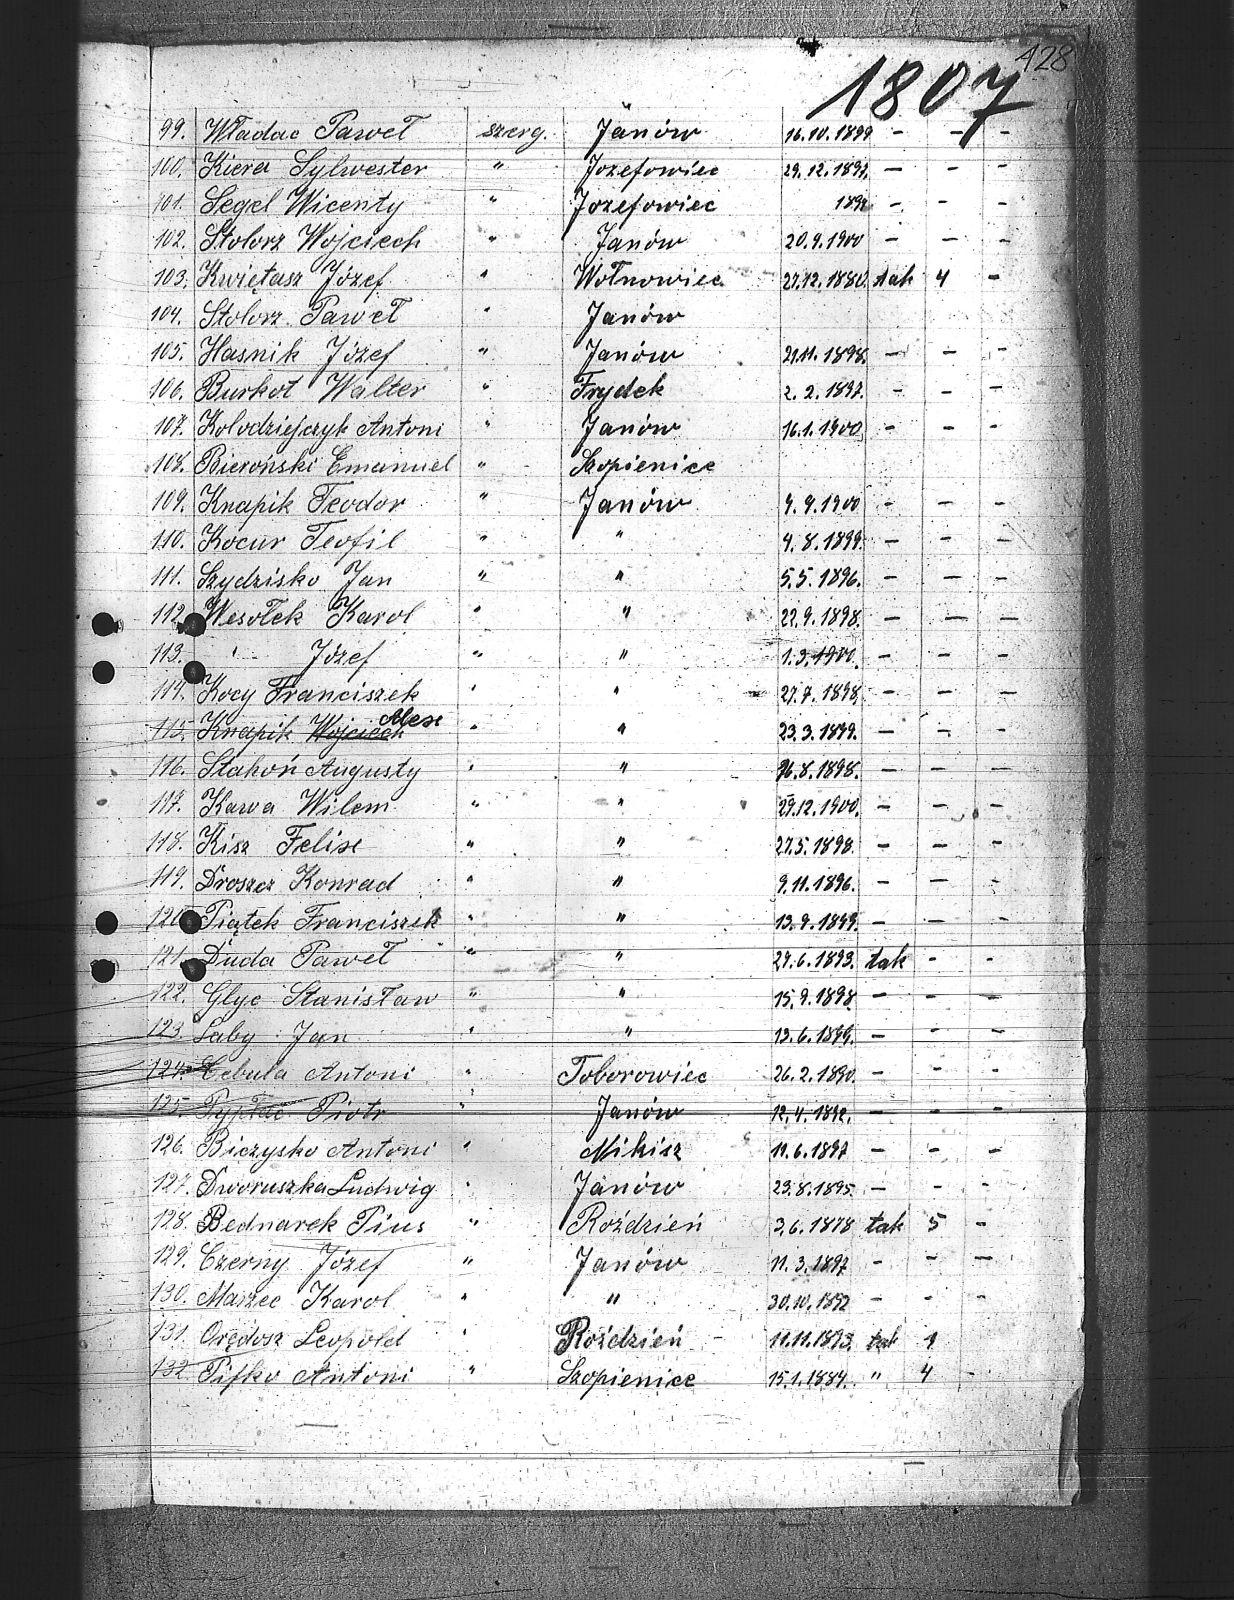 428
1807
99. Władac Paweł szereg. Janów 16.10.1899 - - -
100. Kiera Sylwester " Jozefowiec 29.12.1897. - - -
101. Segel Wicenty " Jozefowiec - - -
102. Stolorz Wojciech " Janów 20.9.1900 - - -
103. Kwiętasz Józef " Wełnowiec 27.12.1880. tak 4 -
104. Stolorz Paweł " Janów
105. Hasnik Józef " Janów 21.11.1898. - - -
106. Burkot Walter " Frydek 2.2.1897. - - -
107. Kolodziejczyk Antoni " Janów 16.1.1900 - - -
108. Bieroński Emanuel " Szopienice
109. Knapik Teodor " Janów 4.9.1900 - - -
110. Kocur Teofil " " 4.8.1899. - - -
111. Szydzisko Jan " " 5.5.1896. - - -
112. Wesołek Karol " " 22.9.1898. - - -
113. " Józef " " 1.3.1900. - - -
114. Kocy Franciszek " " 27.7.1898. - - -
115. Knapik Wojciech Alex " " 23.3.1899. - - -
116. Stakoń Augusty " " 16.8.1898. - - -
117. Kawa Wilem " " 29.12.1900. - - -
118. Kisz Felix " " 27.5.1898. - - -
119. Droszcz Konrad " " 9.11.1896. - - -
120. Piątek Franciszek " " 13.9.1899. - - -
121. Duda Paweł " " 29.6.1893. tak - -
122. Glyc Stanisław " " 15.9.1898 - - -
123. Laby Jan " " 13.6.1899. - - -
124. Cebula Antoni " Toborowiec 26.2.1890. - - -
125. Piotr " Janów 12.4.1892. - - -
126. Biczysko Antoni " Mikisz 11.6.1897 - - -
127. Dworuszka Ludwig " Janów 23.8.1895. - - -
128. Bednarek Pius " Roździeń 3.6.1878 tak 5 -
129. Czerny Józef " Janów 11.3.1897 - - -
130. Maszec Karol " " 30.10.1892 - - -
131. Orędosz Leopold " Roździeń 11.11.1893. tak 1
132. Pifko Antoni " Szopienice 15.1.1884. " 4 -